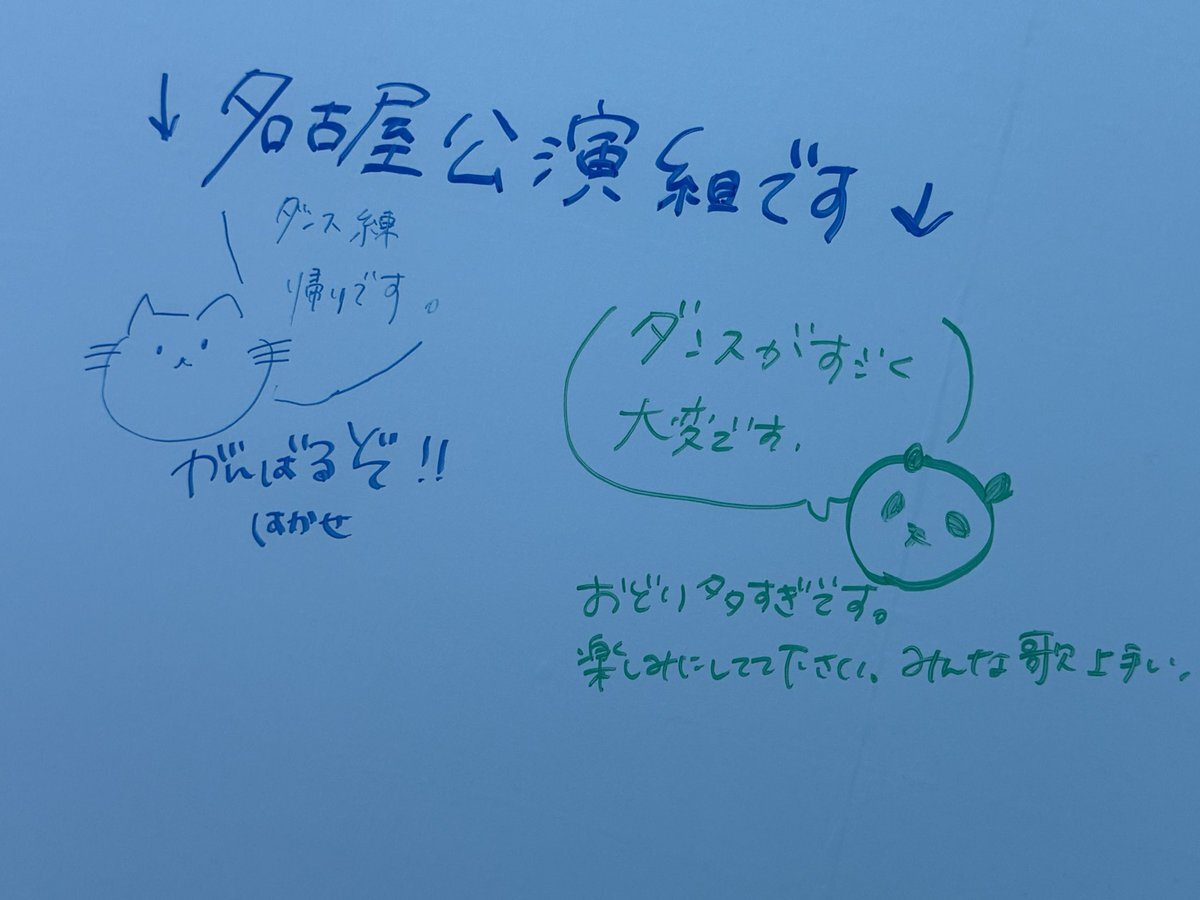 ↓名古屋公演組です↓
ダンス練
帰りです。
がんばるぞ!!
はかせ
ダンスがすごく
大変です。
おどり多すぎです。
楽しみにしてて下さい。みんな歌上手い。